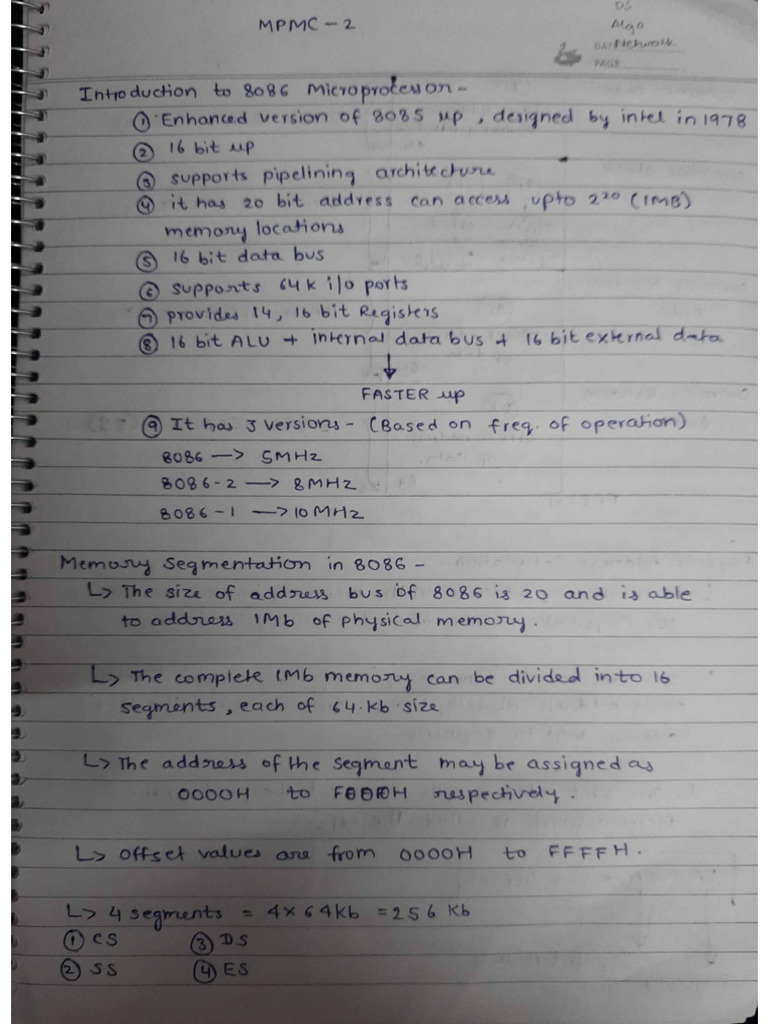 DS
MPMC - 2
Algo
Network
PAGE
Introduction to 8086 Microprocessor -
① Enhanced version of 8085 μp, designed by intel in 1978
② 16 bit μp
③ supports pipelining architecture
④ it has 20 bit address can access upto 2²⁰ (1MB)
memory locations
⑤ 16 bit data bus
⑥ supports 64K i/o ports
⑦ provides 14, 16 bit Registers
⑧ 16 bit ALU + internal data bus + 16 bit external data
↓
FASTER μp
⑨ It has 3 versions - (Based on freq. of operation)
8086 → 5MHz
8086-2 → 8MHz
8086-1 → 10MHz
Memory Segmentation in 8086 -
↳ The size of address bus of 8086 is 20 and is able
to address 1Mb of physical memory.
↳ The complete 1Mb memory can be divided into 16
segments, each of 64.Kb size
↳ The address of the segment may be assigned as
0000H to F000H respectively.
↳ Offset values are from 0000H to FFFFH.
↳ 4 segments = 4×64Kb = 256 Kb
① CS ③ DS
② SS ④ ES